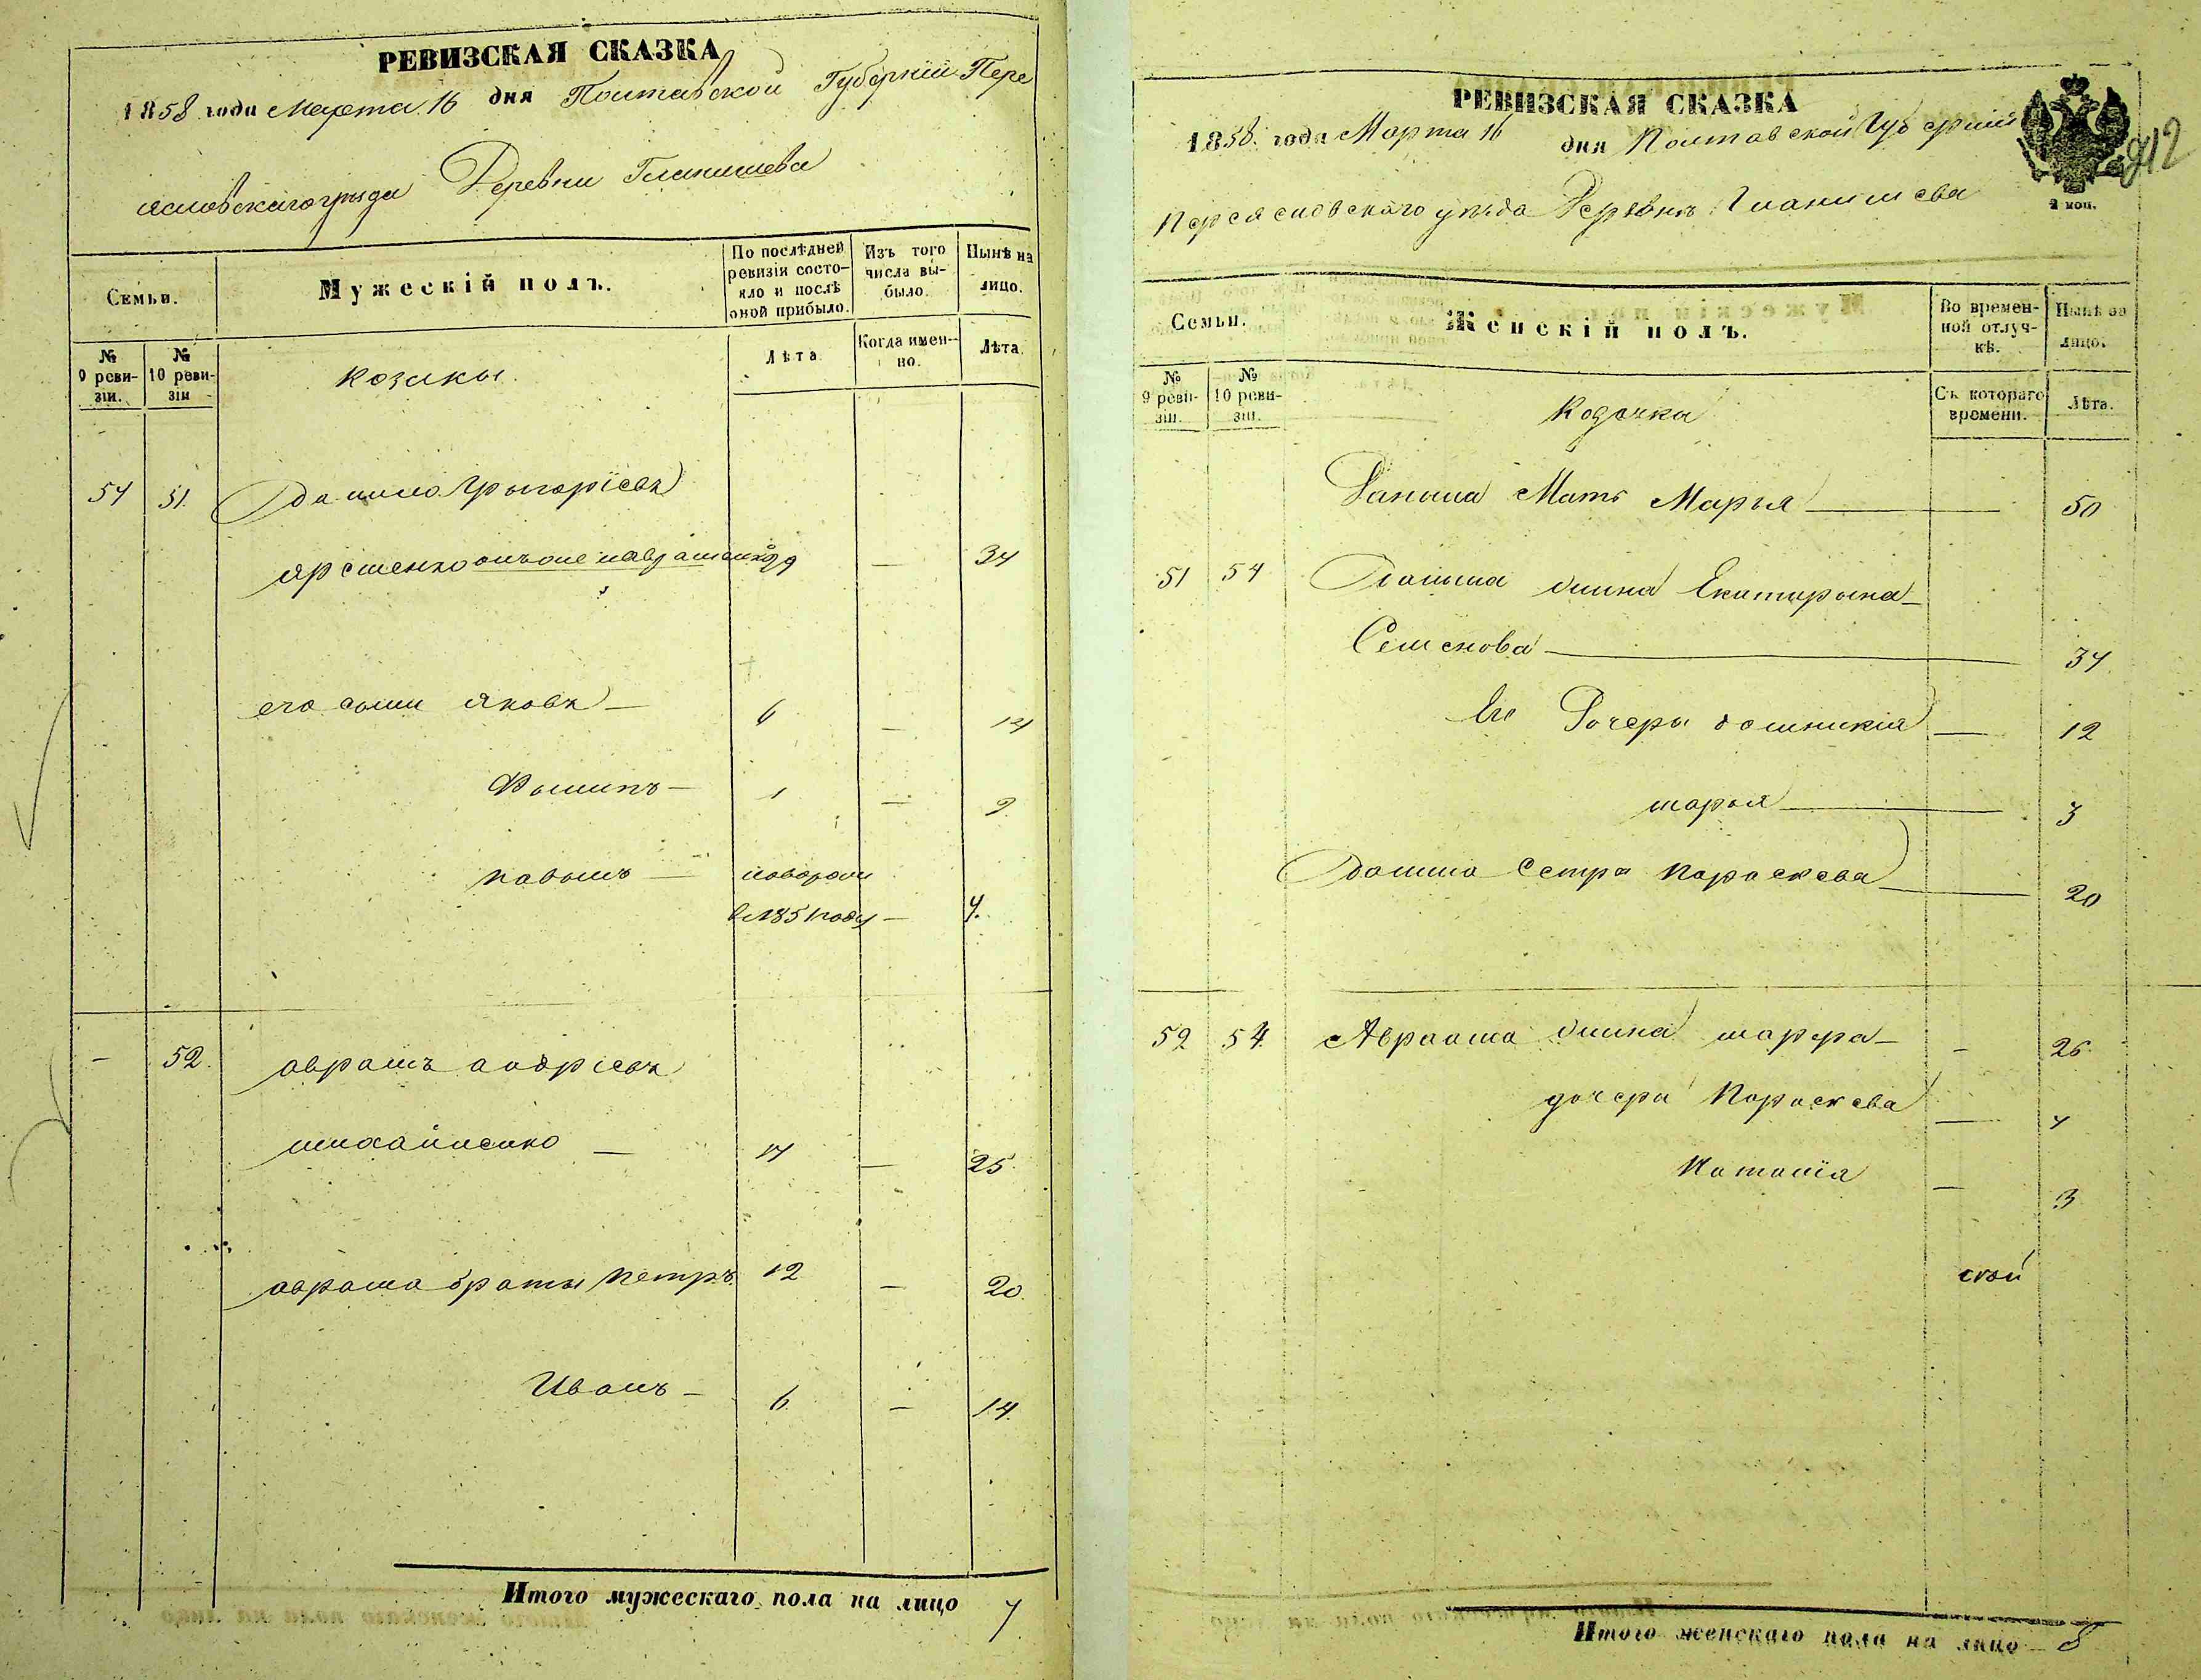 РЕВИЗСКАЯ СКАЗКА
1858 года Марта 16 дня Полтавской Губернии Пере
яславскаго уезда Деревни Гланишева
Семьи.
Мужескій полъ.
По послѣдней ревизіи состо-
яло и послѣ
оной прибыло.
Изъ того
числа вы-
было.
Нынѣ на
лицо.
№
9 реви-
зіи.
№
10 реви-
зіи
Козаки.
Лѣта
Когда имен-
но.
Лѣта.
54 51. Данило Григоріевъ
Яременко 34
его сыни Яковъ 6 — 14
Филипъ — 1 — 9
Павелъ —
в 1851 году — 4.
— 52. Аврамъ Андріевъ
Михайленко — 17 — 25.
Аврама браты Петръ 12 — 20.
Иванъ — 6. — 14.
Итого мужескаго пола на лицо 7
РЕВИЗСКАЯ СКАЗКА
1858. года Марта 16 дня Полтавской Губернии
Переяславскаго уезда Деревнѣ Гланишева
2 коп.
212
Семьи.
Женскій полъ.
Во времен-
ной отлуч-
кѣ.
Нынѣ на
лицо.
№
9 реви-
зіи.
№
10 реви-
зіи.
Козачка
Съ котораго
времени.
Лѣта.
Данила Мать Марья — 50
51 54 Данила жина Екатирына
Семенова — 34
Его Дочеры Домникія — 12
Марья — 3
Данила Сестра Параскева — 20
52 54 Авраама жина Марфа — — 26.
дочери Параскева — 4
Наталія — 3
ской
Итого женскаго пола на лицо — 8